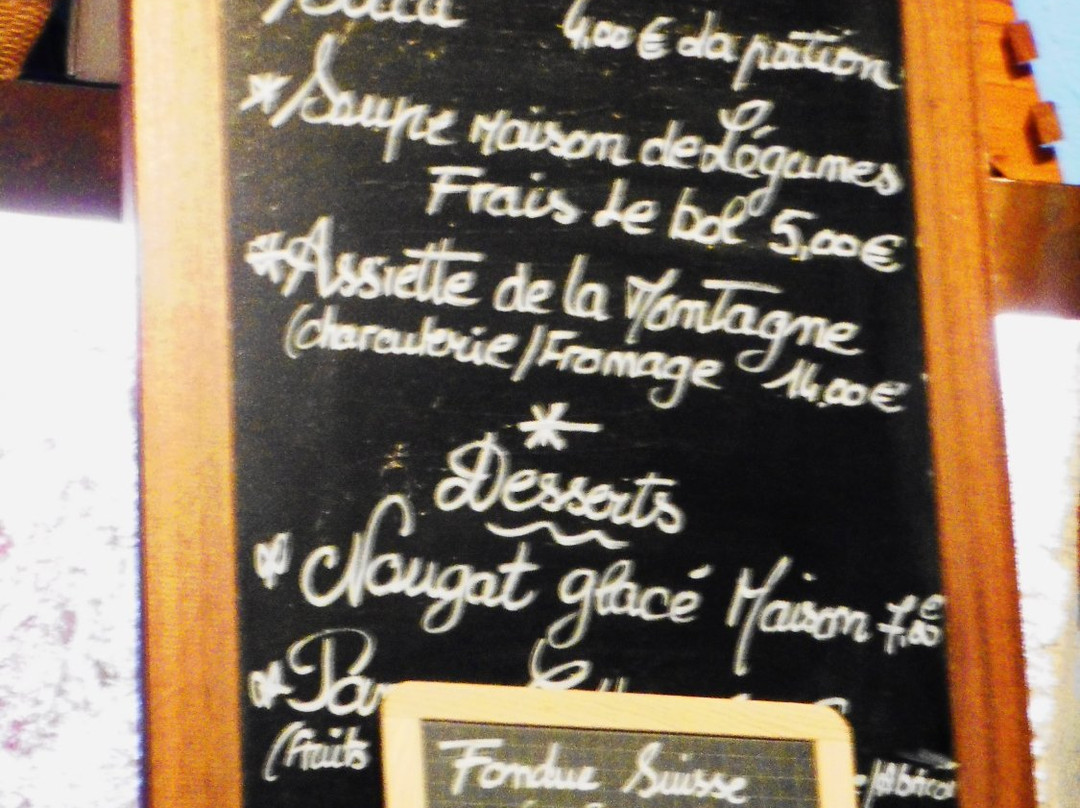 4,00 € la pâtion
* Soupe Maison de Légumes
Frais Le bol 5,00 €
* Assiette de la Montagne
(charcuterie/Fromage 14,00 €
*
Desserts
* Nougat glacé Maison 7,00 €
(fruits
Fondue Suisse